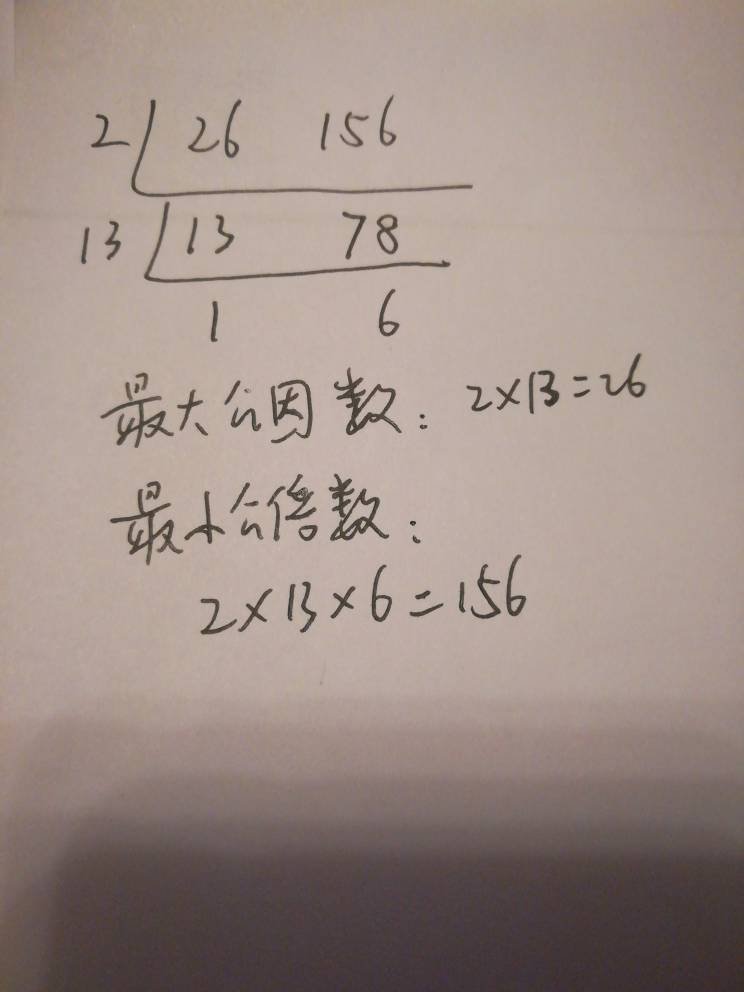 2 26 156
13 13 78
1 6
最大公因数：2×13=26
最小公倍数：
2×13×6=156